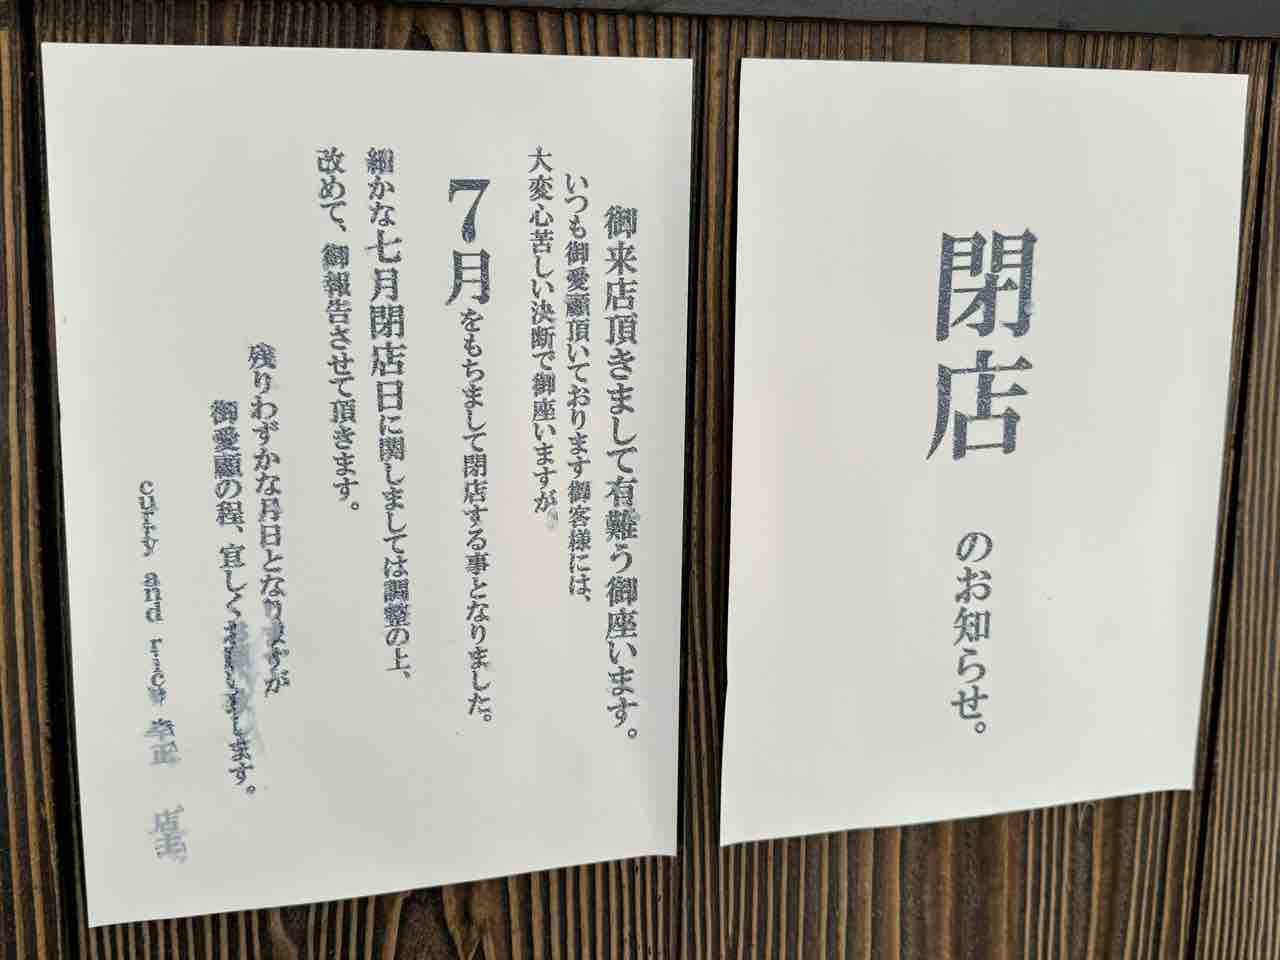 閉店のお知らせ。
御来店頂きまして有難う御座います。
いつも御愛顧頂いております御客様には、
大変心苦しい決断で御座いますが
7月をもちまして閉店する事となりました。
細かな七月閉店日に関しましては調整の上、
改めて、御報告させて頂きます。
残りわずかな月日となりますが
御愛顧の程、宜しくお願い致します。
curry and rice 幸正 店主